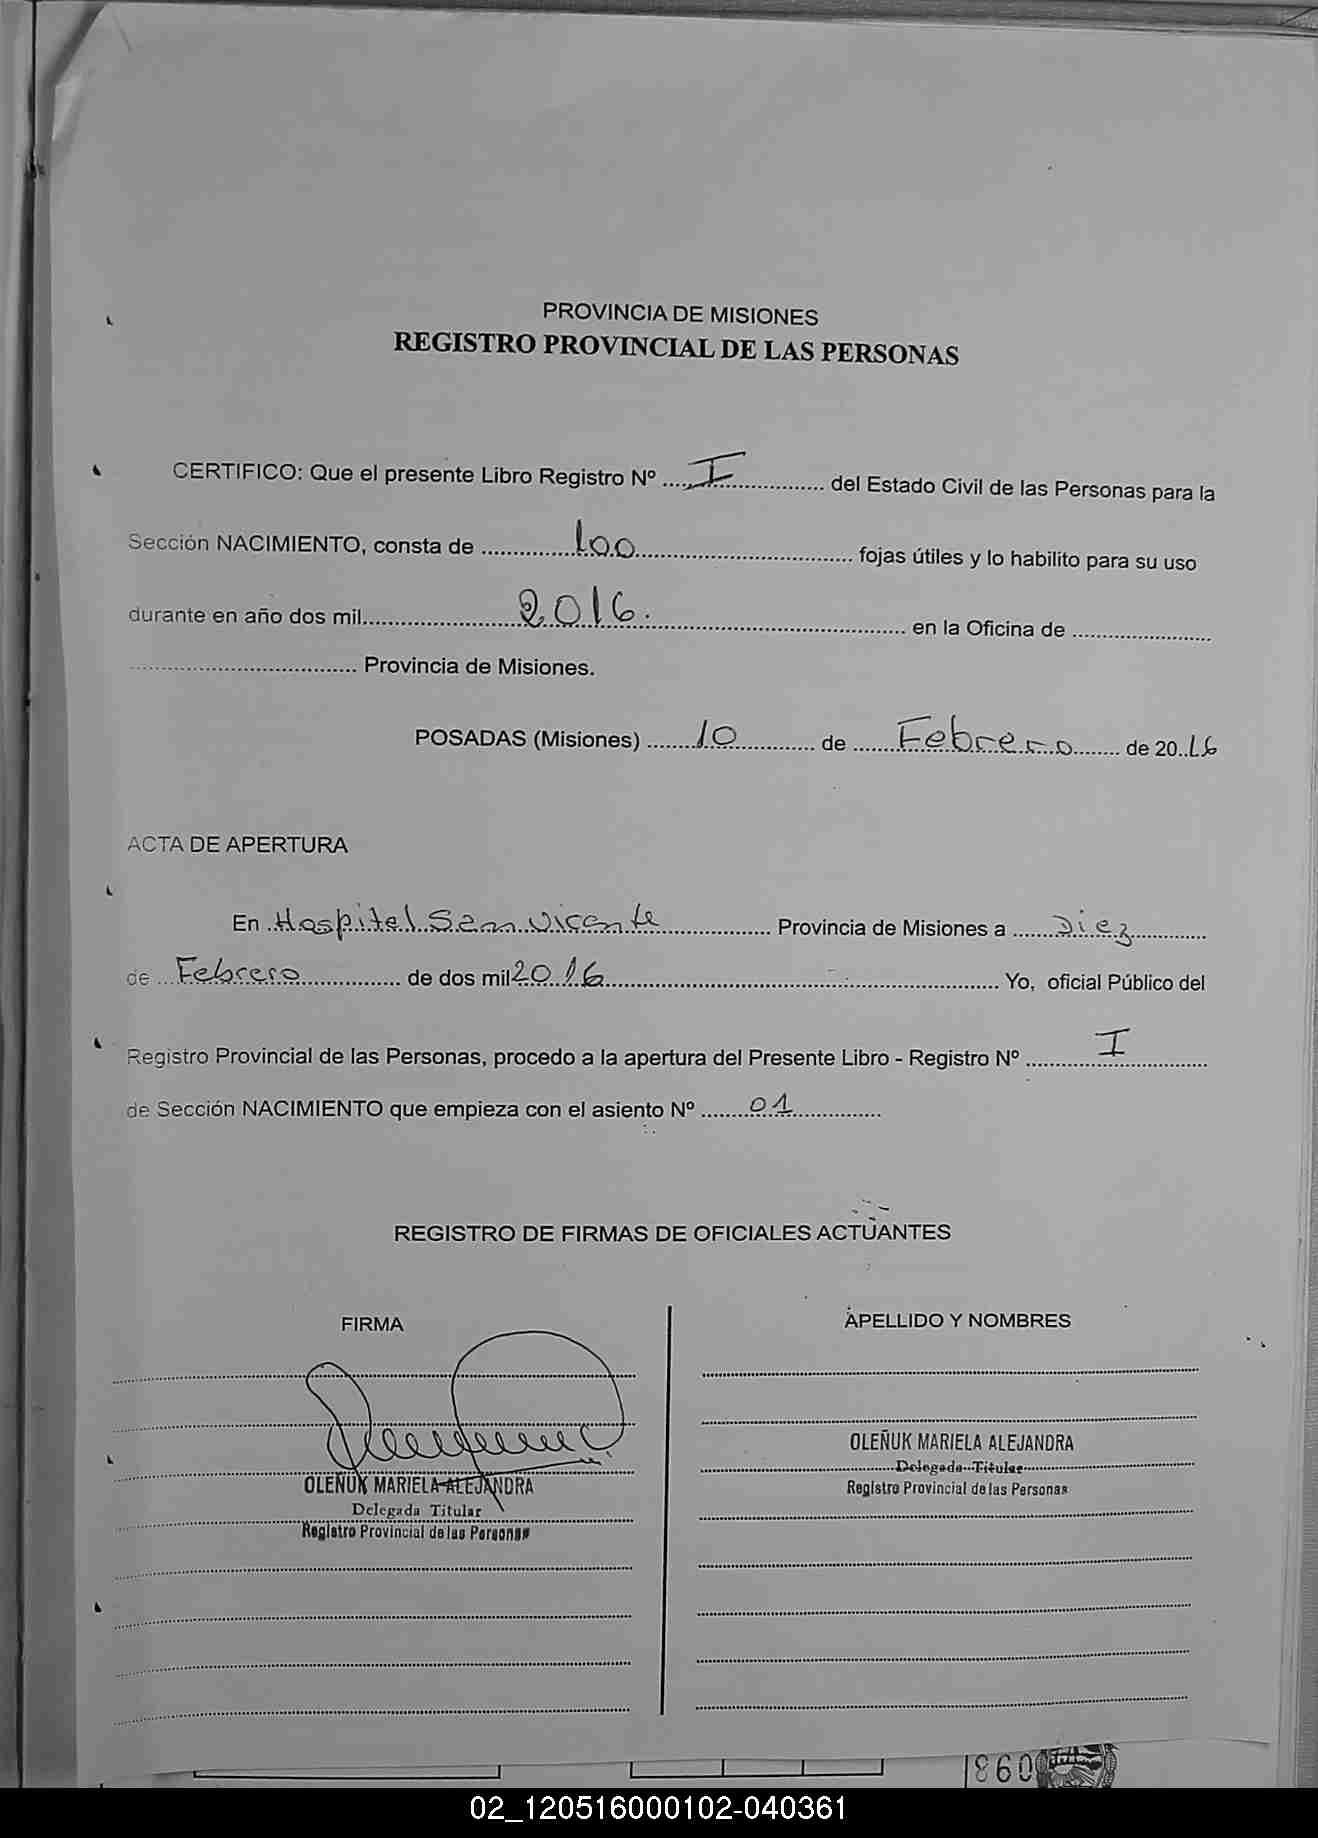 PROVINCIA DE MISIONES
REGISTRO PROVINCIAL DE LAS PERSONAS
CERTIFICO: Que el presente Libro Registro Nº ..... I ..... del Estado Civil de las Personas para la
Sección NACIMIENTO, consta de ..... 100 ..... fojas útiles y lo habilito para su uso
durante en año dos mil ..... 2016. ..... en la Oficina de .....
..... Provincia de Misiones.
POSADAS (Misiones) ..... 10 ..... de ..... Febrero ..... de 20..16
ACTA DE APERTURA
En ..Hospital San Vicente ..... Provincia de Misiones a ..... Diez .....
de ... Febrero ..... de dos mil 2016 ..... Yo, oficial Público del
Registro Provincial de las Personas, procedo a la apertura del Presente Libro - Registro Nº ..... I .....
de Sección NACIMIENTO que empieza con el asiento Nº ..... 01 .....
REGISTRO DE FIRMAS DE OFICIALES ACTUANTES
FIRMA
OLEÑUK MARIELA ALEJANDRA
Delegada Titular
Registro Provincial de las Personas
APELLIDO Y NOMBRES
OLEÑUK MARIELA ALEJANDRA
Delegada Titular
Registro Provincial de las Personas
860
02_120516000102-040361